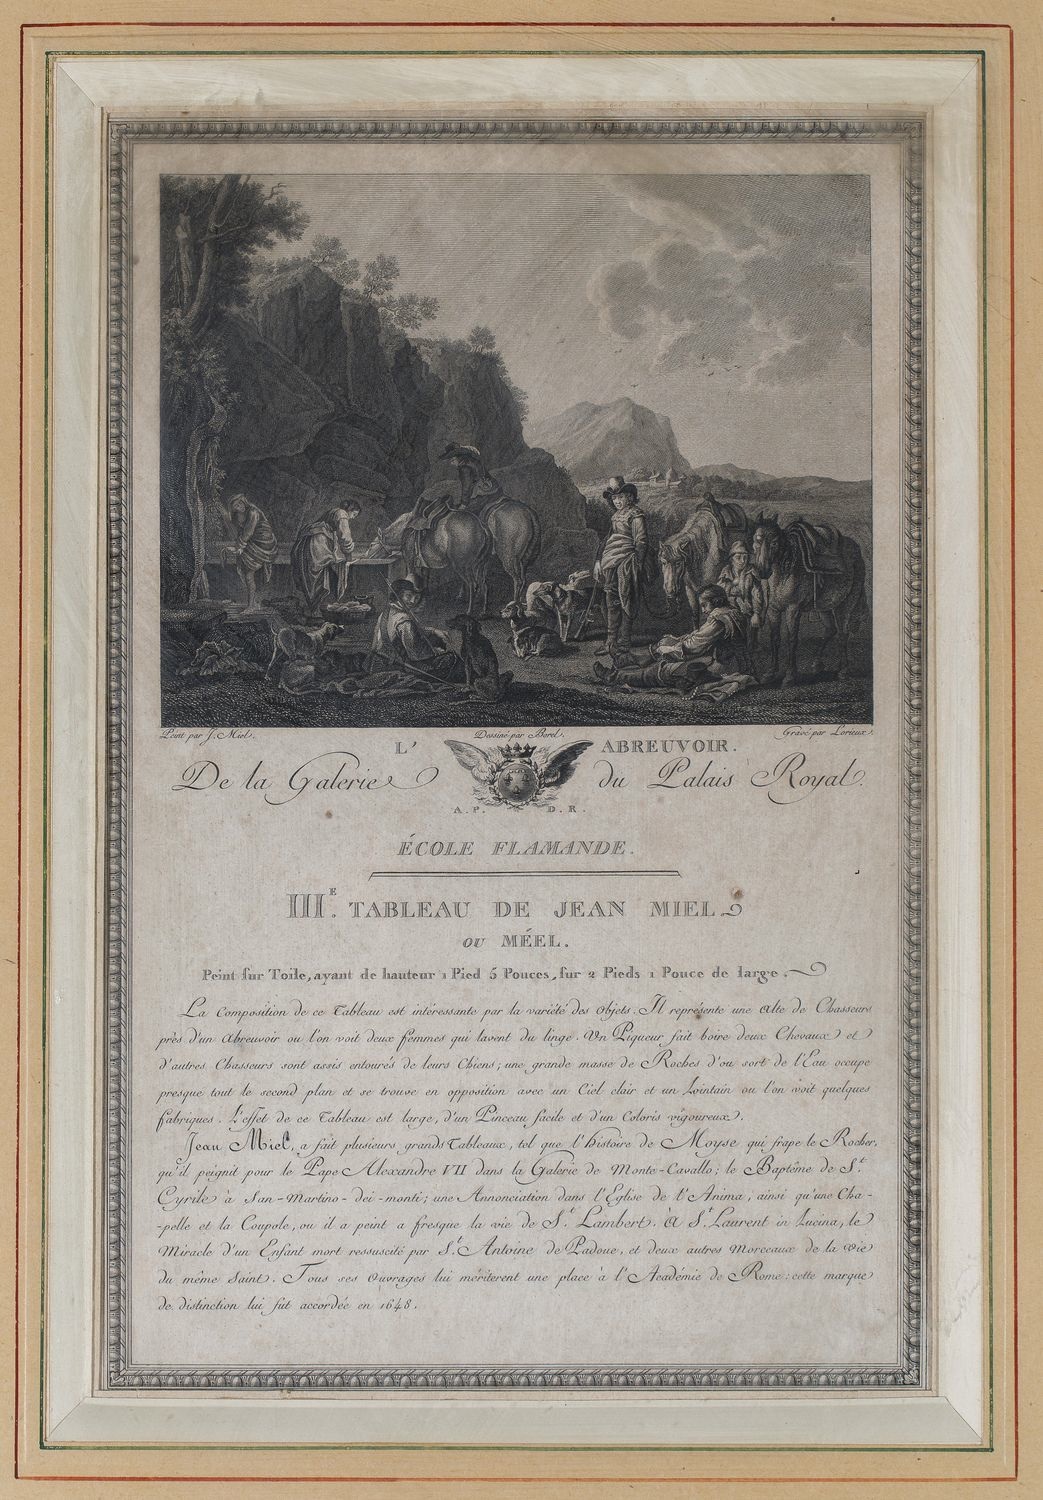 Peint par J. Miel.
Dessiné par Borel.
Gravé par Lorieux.
L' ABREUVOIR.
De la Galerie du Palais Royal.
A. P. D. R.
ÉCOLE FLAMANDE.
IIIE. TABLEAU DE JEAN MIEL
OU MÉEL.
Peint sur Toile, ayant de hauteur 1 Pied 5 Pouces, sur 2 Pieds 1 Pouce de large.
La Composition de ce Tableau est intéressante par la variété des Objets. Il représente une Alte de Chasseurs
près d'un Abreuvoir ou l'on voit deux femmes qui lavent du linge. Un Piqueur fait boire deux Chevaux et
d'autres Chasseurs sont assis entourés de leurs Chiens; une grande masse de Roches d'ou sort de l'Eau occupe
presque tout le second plan et se trouve en opposition avec un Ciel clair et un Lointain ou l'on voit quelques
fabriques. L'effet de ce Tableau est large, d'un Pinceau facile et d'un Coloris vigoureux.
Jean Miel, a fait plusieurs grands Tableaux, tel que l'histoire de Moyse qui frape le Rocher,
qu'il peignit pour le Pape Alexandre VII dans la Galerie de Monte-Cavallo; le Baptême de St.
Cyrile à San-Martino-dei-monti; une Annonciation dans l'Eglise de l'Anima, ainsi qu'une Cha-
-pelle et la Coupole, ou il a peint a fresque la vie de St. Lambert. à St. Laurent in Lucina, le
Miracle d'un Enfant mort ressuscité par St. Antoine de Padoue, et deux autres Morceaux de la Vie
du même Saint. Tous ses Ouvrages lui méritèrent une place à l'Académie de Rome: cette marque
de distinction lui fut accordée en 1648.